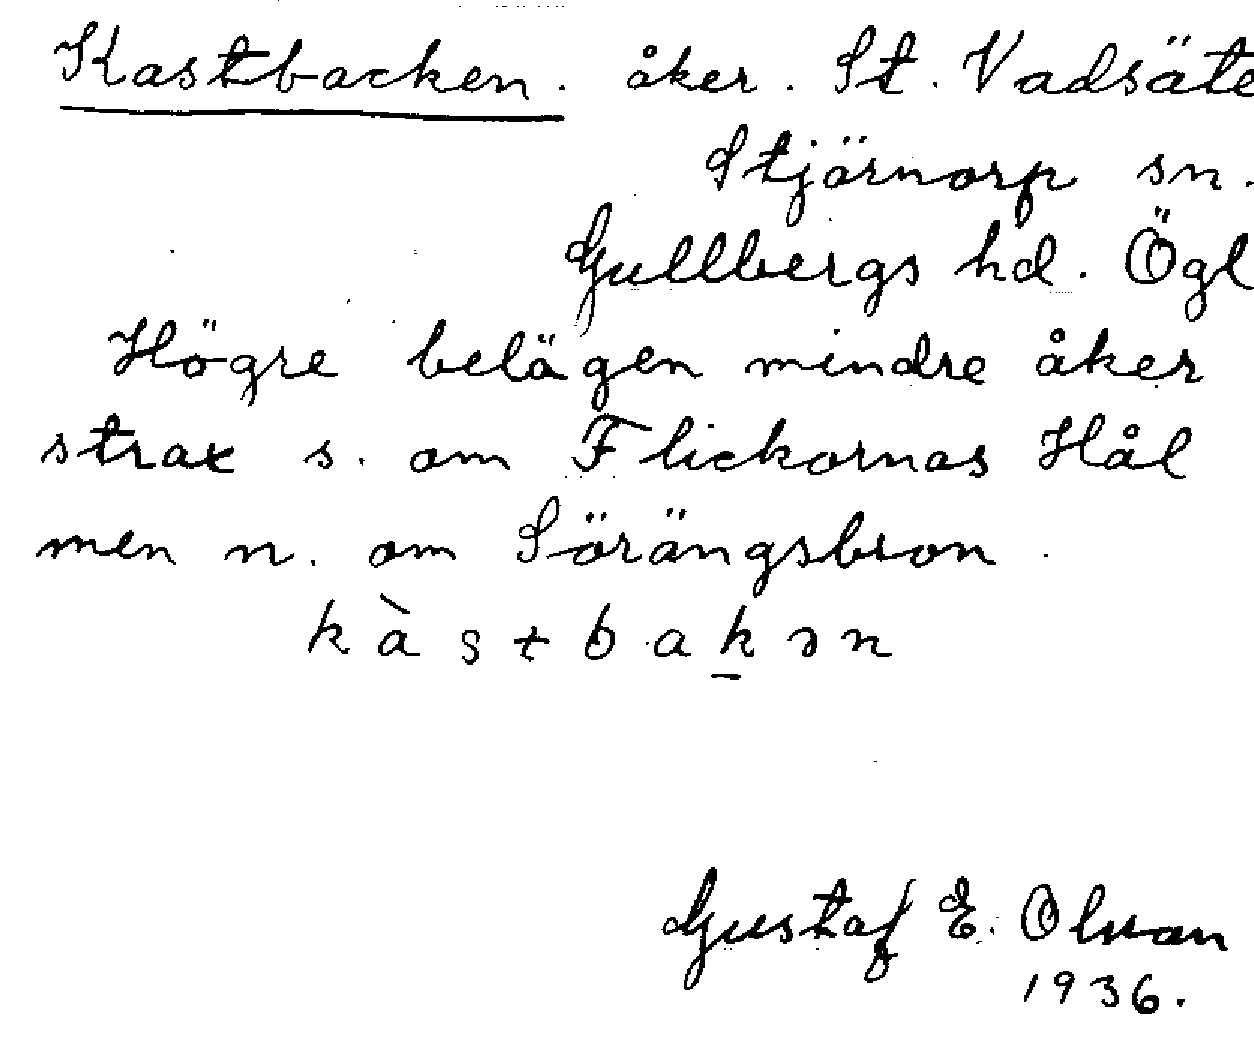 Kastbacken. åker. St. Vadsäte
Stjärnorp sn.
Gullbergs hd. Ögl
Högre belägen mindre åker
strax s. om Flickornas Hål
men n. om Sörängsbron.
kàstbakən
Gustaf E. Olsson
1936.